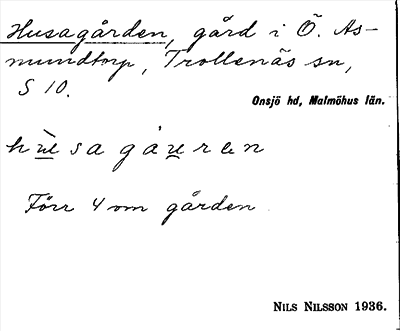 Husagården, gård i Ö. As-
mundtorp, Trollenäs sn,
S 10.
Onsjö hd, Malmöhus län.
hu̲sagåu̲ren
Förr 4 om gården
NILS NILSSON 1936.